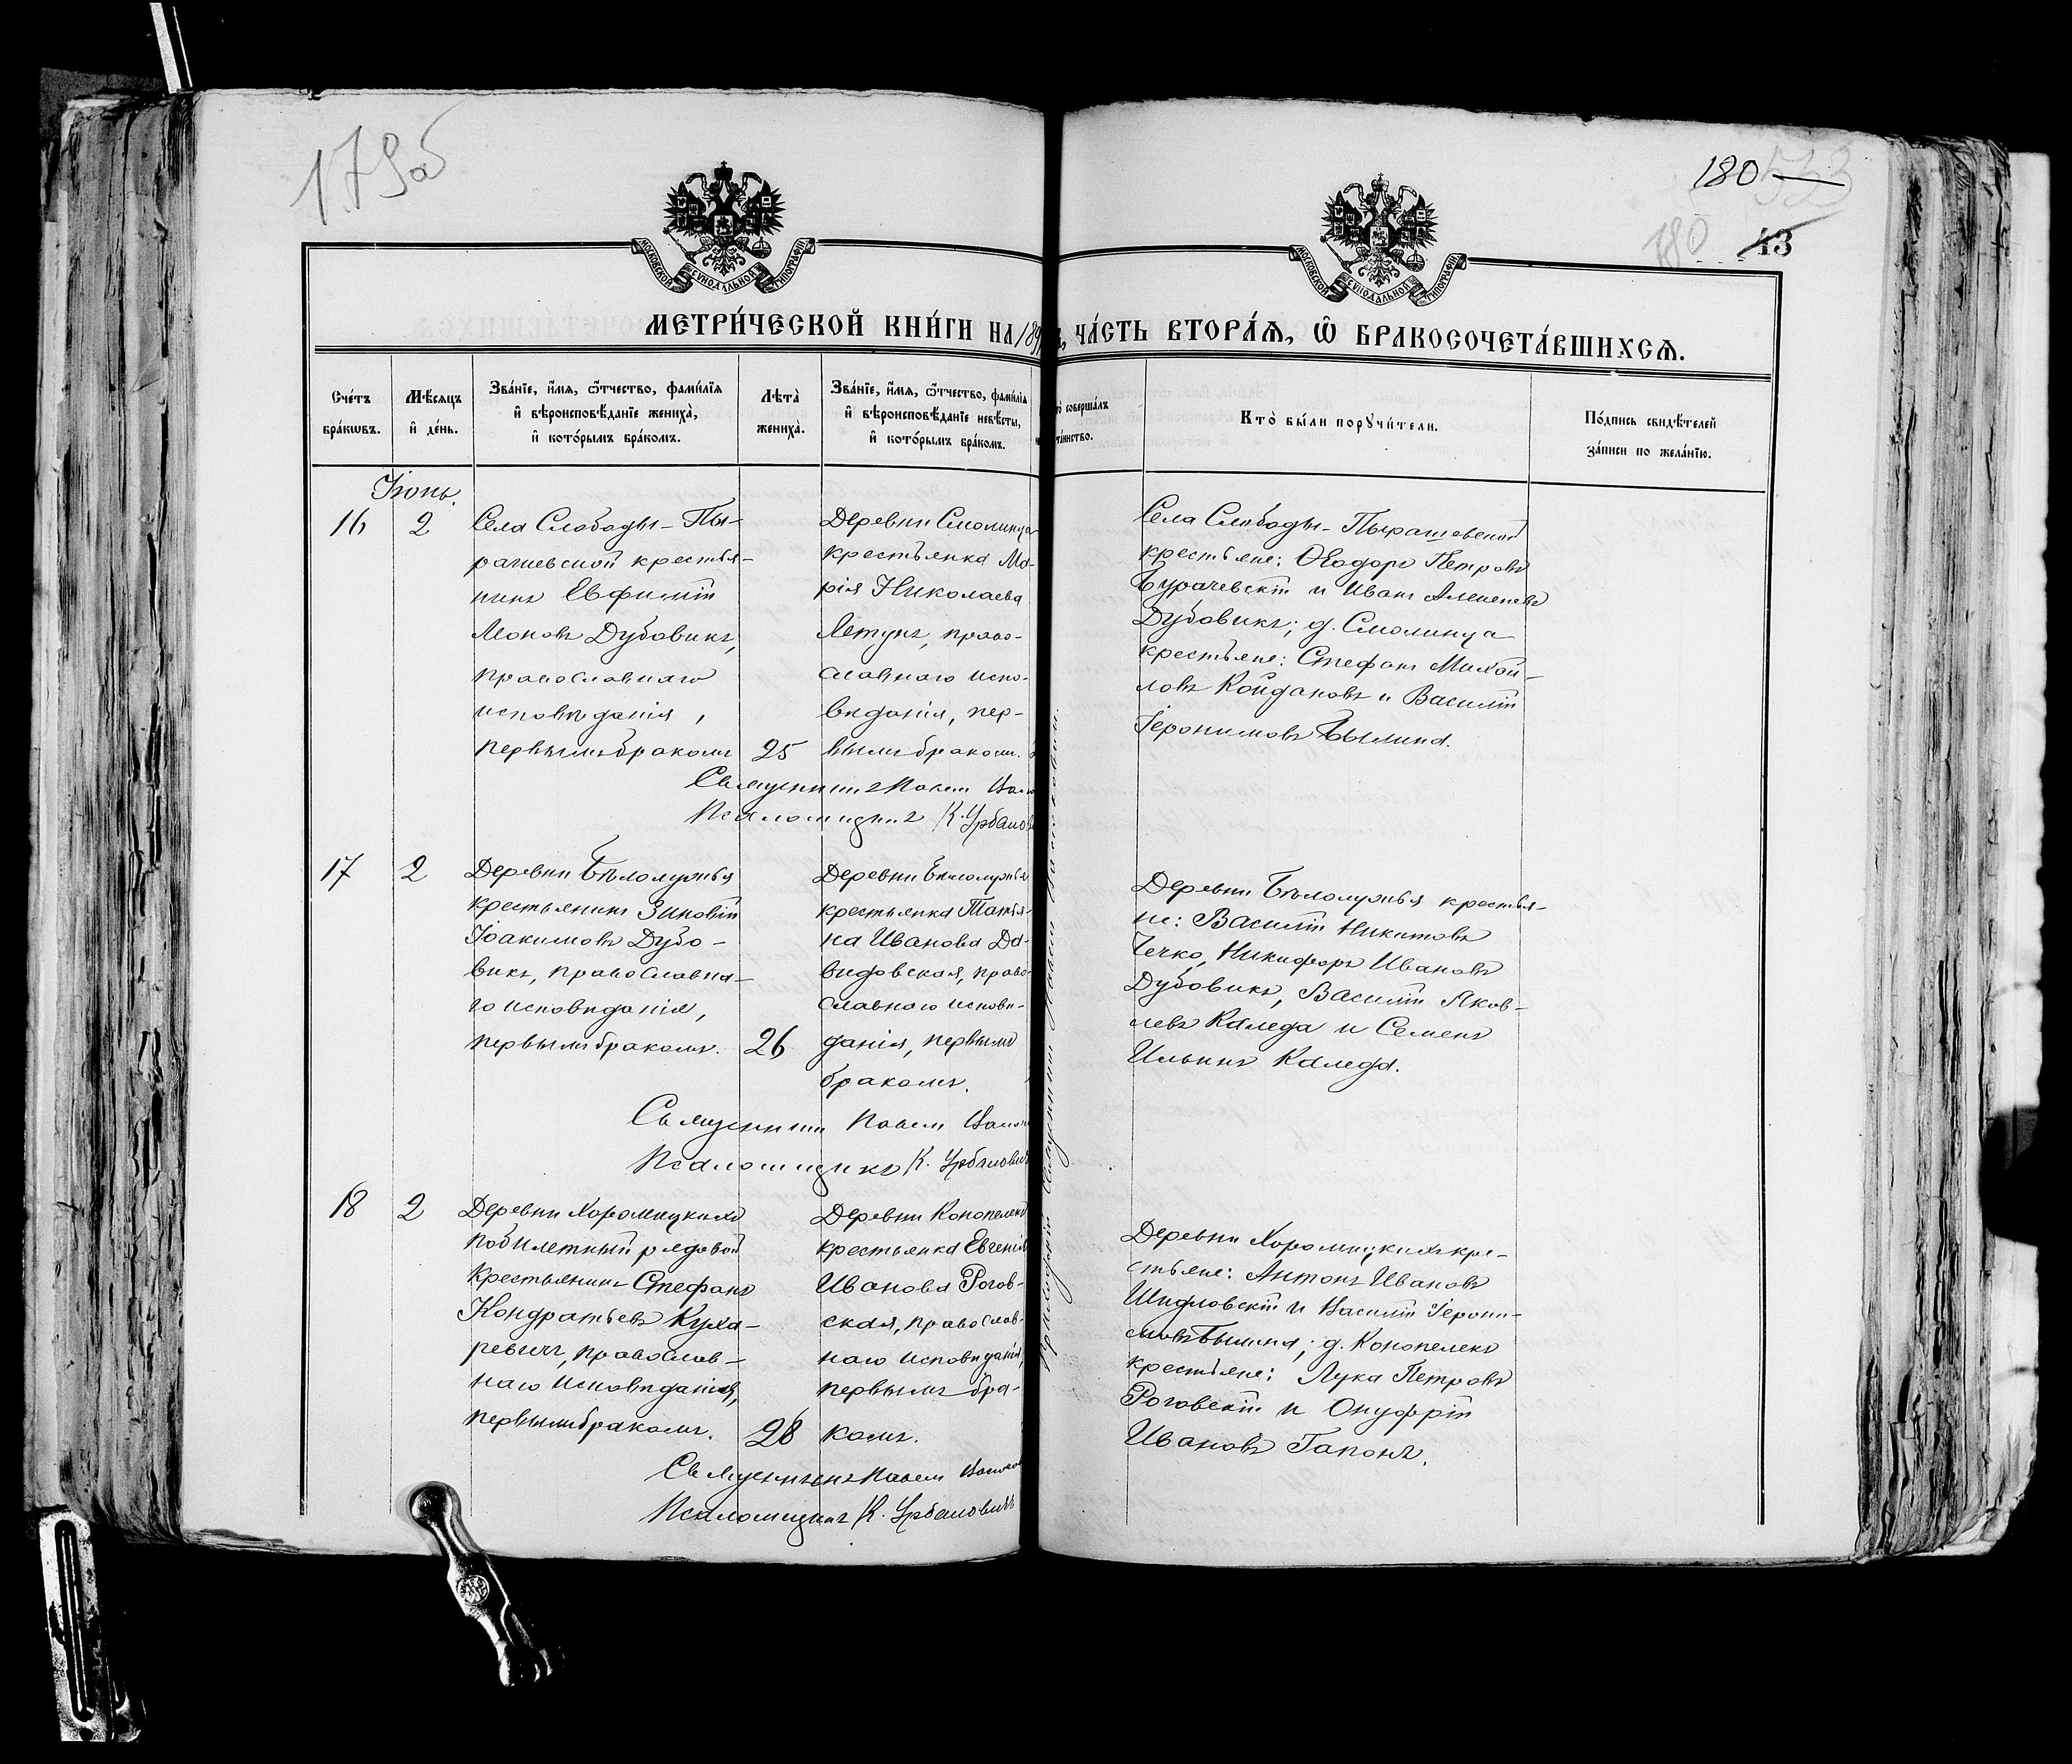 179об
180 533
180 43
МОСКОВСКОЙ СѴНОДАЛЬНОЙ ТИПОГРАФІИ
МОСКОВСКОЙ СѴНОДАЛЬНОЙ ТИПОГРАФІИ
МЕТРИ́ЧЕСКОЙ КНИ́ГИ НА 189 , ЧА́СТЬ ВТОРА́Ѧ, Ѽ БРАКОСОЧЕТА́ВШИХСѦ.
Сче́тъ бра́кѡвъ.
Мѣ́сяцъ и҆ де́нь.
Зва́нїе, и҆́мя, ѻ҆́тчество, фами́лїя
и҆ вѣроисповѣ́данїе жениха̀,
и҆ кото́рымъ бра́комъ.
Лѣта̀ жениха̀.
Зва́нїе, и҆́мя, ѻ҆́тчество, фами́лїя
и҆ вѣроисповѣ́данїе невѣ́сты,
и҆ кото́рымъ бра́комъ.
соверша́лъ
та́инство.
Кто̀ бы́ли порꙋчи́тели.
По́дпись свидѣ́телей
за́писи по жела́нїю.
Іюнь.
16
2
Села Слободы-Пы-
рашевской крестья-
нинъ Евфимій
Леоновъ Дубовикъ,
православнаго
исповѣданія,
первымъ бракомъ
25
Деревни Смолинца
крестьянка Ма-
рія Николаева
Летунъ, право-
славнаго испо-
вѣданія, пер-
вымъ бракомъ.
Села Слободы-Пырашевской
крестьяне: Ѳеодоръ Петровъ
Бурачевскій и Иванъ Алексѣевъ
Дубовикъ; д. Смолинца
крестьяне: Стефанъ Михай-
ловъ Койдановъ и Василій
Іеронимовъ Былина.
Священникъ Павелъ
Псаломщикъ К. Урбанов
17
2
Деревни Бѣлолужья
крестьянинъ Зиновій
Іоакимовъ Дубо-
викъ, православна-
го исповѣданія,
первымъ бракомъ.
26
Деревни Бѣлолужья
крестьянка Татья-
на Иванова Да-
видовская, право-
славнаго исповѣ-
данія, первымъ
бракомъ.
Деревни Бѣлолужья крестья-
не: Василій Никитовъ
Чечко, Никифоръ Ивановъ
Дубовикъ, Василій Яков-
левъ Каледа и Семенъ
Ильинъ Каледа.
Священникъ Павелъ
Псаломщикъ К. Урбанович
18
2
Деревни Хоромицкихъ
побилетный рядовой
крестьянинъ Стефанъ
Кондратьевъ Куха-
ревичъ, православ-
наго исповѣданія,
первымъ бракомъ.
28
Деревни Конопелекъ
крестьянка Евгенія
Иванова Рогов-
ская, православ-
наго исповѣданія,
первымъ бра-
комъ.
Деревни Хоромицкихъ кре-
стьяне: Антонъ Ивановъ
Шидловскій и Василій Іерони-
мовъ Былина; д. Конопелекъ
крестьяне: Лука Петровъ
Роговскій и Онуфрій
Ивановъ Гапонъ.
Священникъ Павелъ
Псаломщикъ К. Урбановичъ